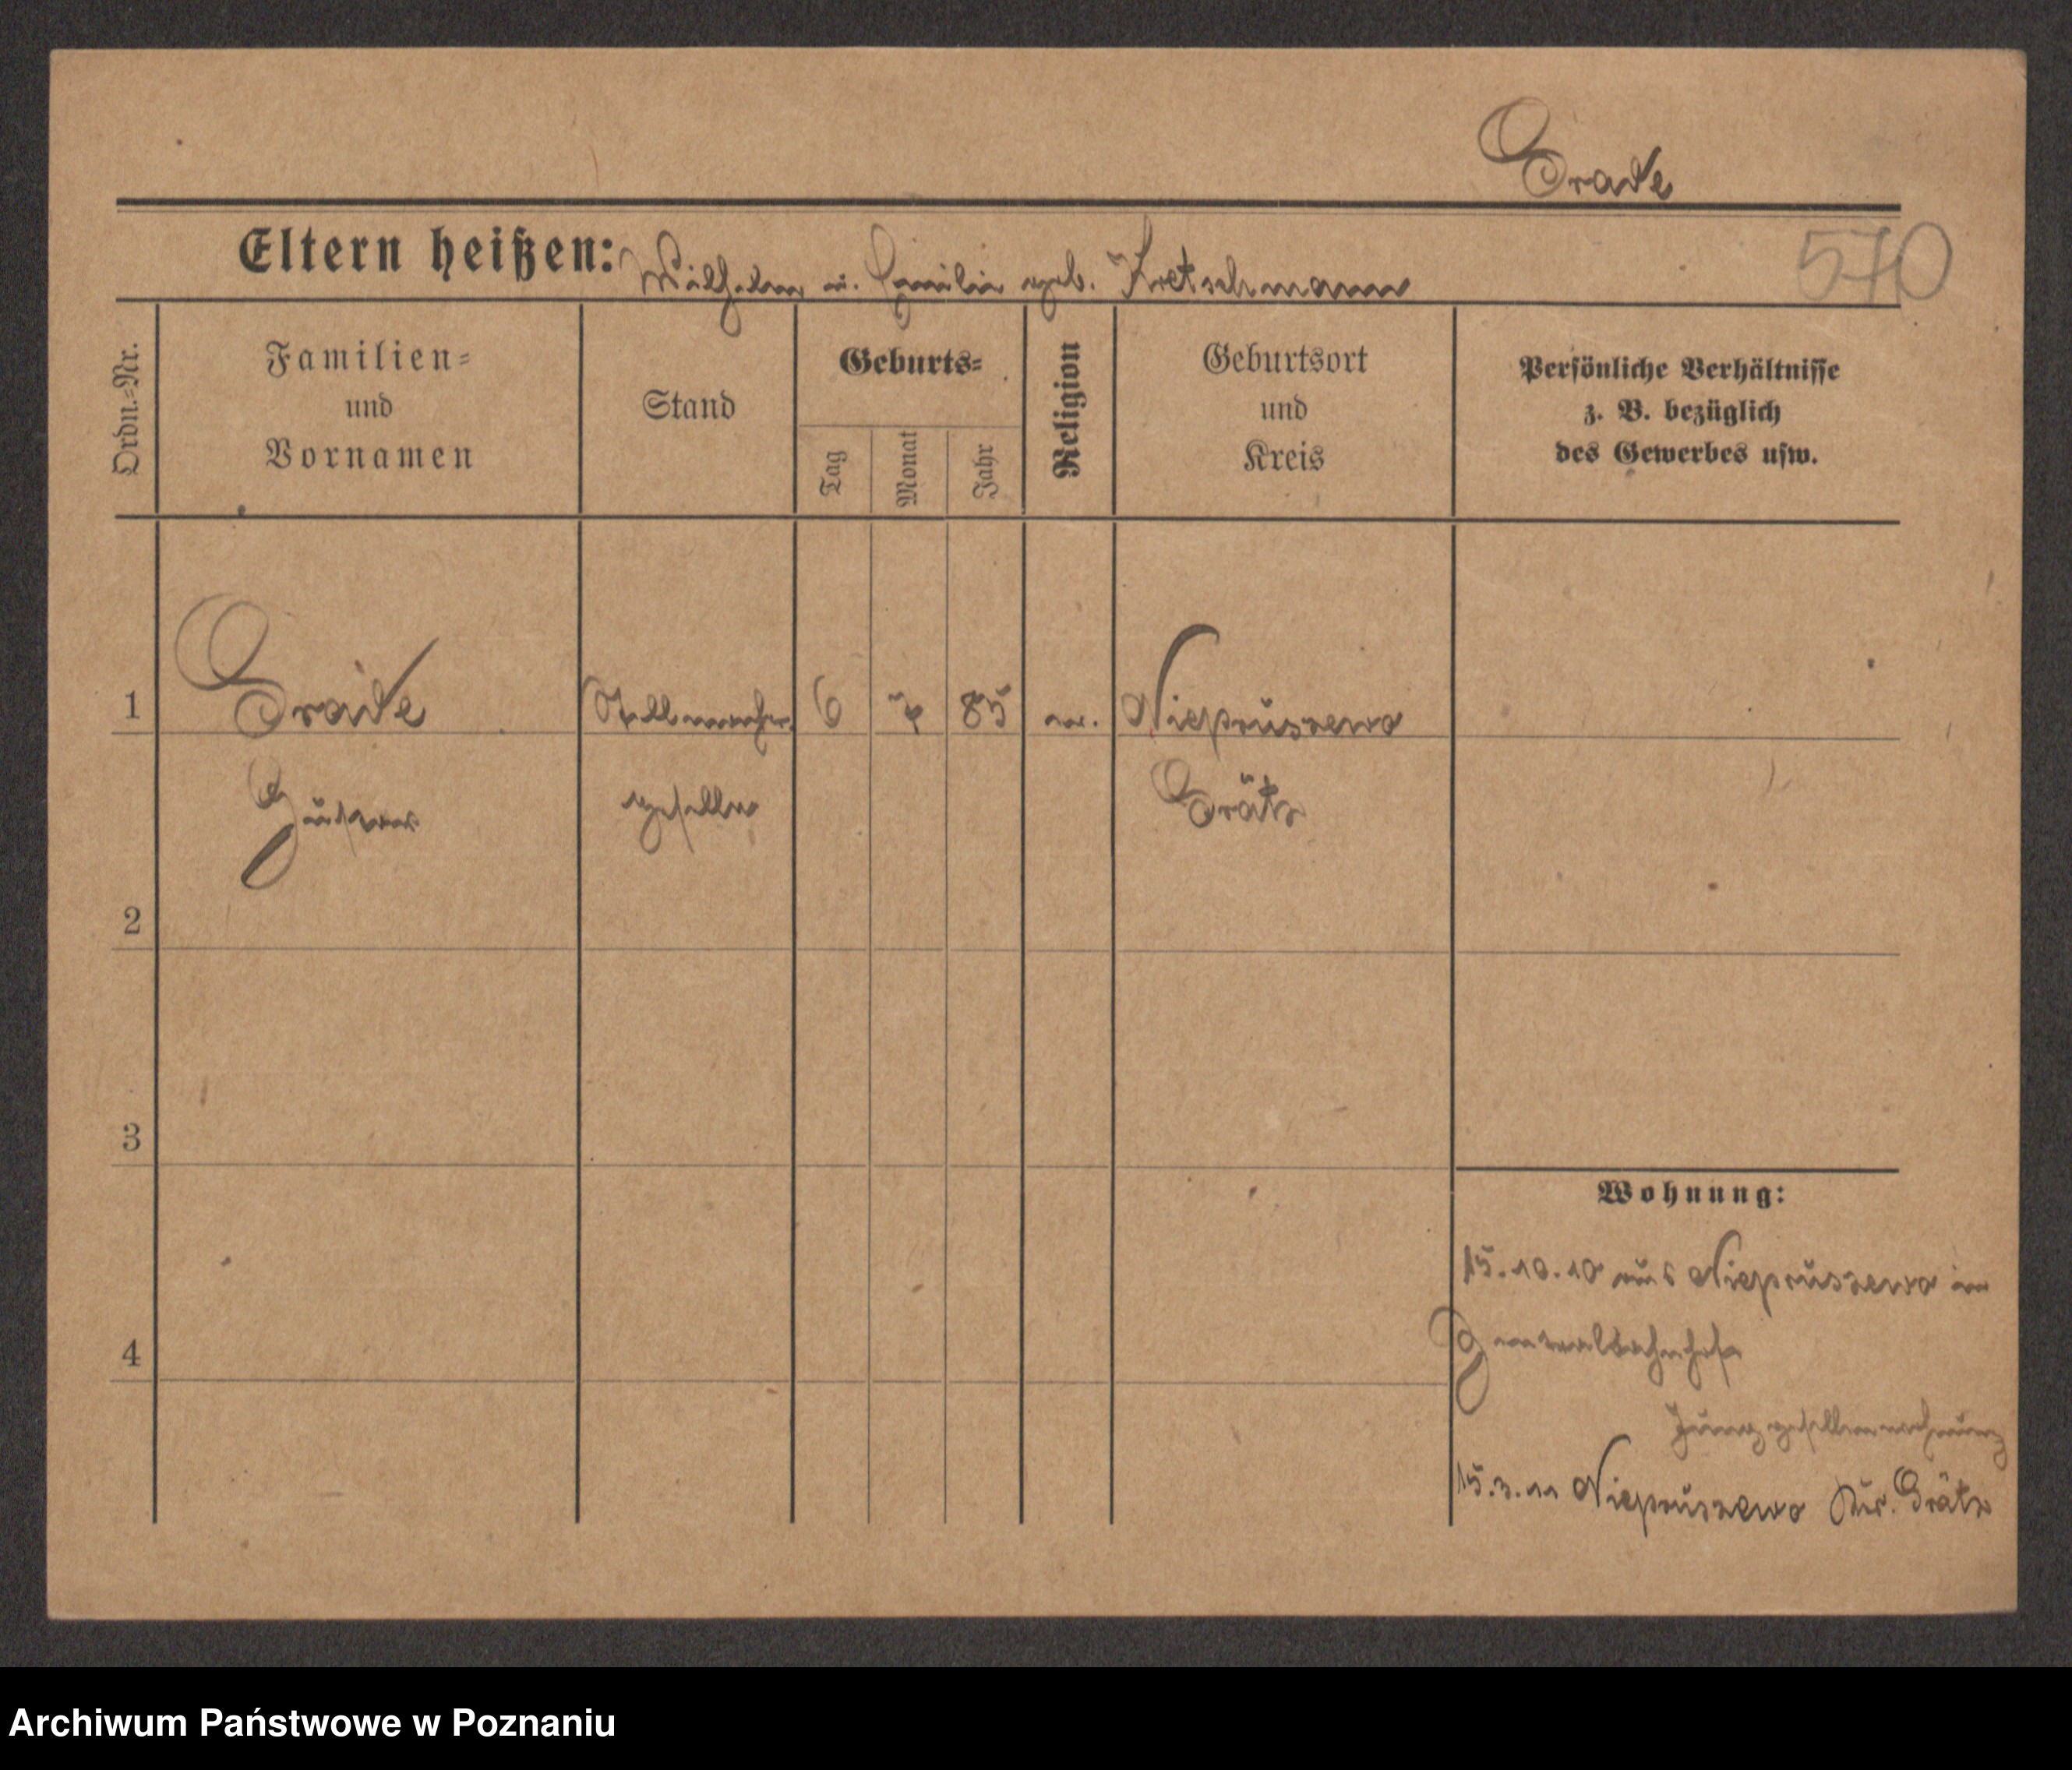 Grade
Eltern heißen: Wilhelm u. Emilie geb. Kretschmann
570
Ordn.-Nr.
Familien-
und
Vornamen
Stand
Geburts-
Tag
Monat
Jahr
Religion
Geburtsort
und
Kreis
Persönliche Verhältnisse
z. B. bezüglich
des Gewerbes usw.
1 Grade Stellmacher 6 85 ev. Niepruszewo
Gustav geselle Grätz
2
3
Wohnung:
15.10.10 aus Niepruszewo in
4
Junggesellenwohnung
15.3.11 Niepruszewo Kr. Grätz
Archiwum Państwowe w Poznaniu